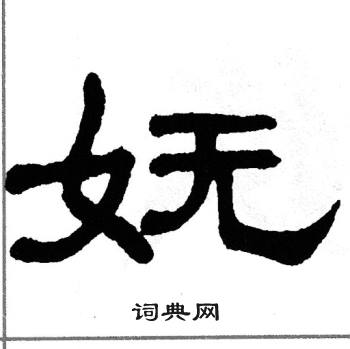 妩
词典网